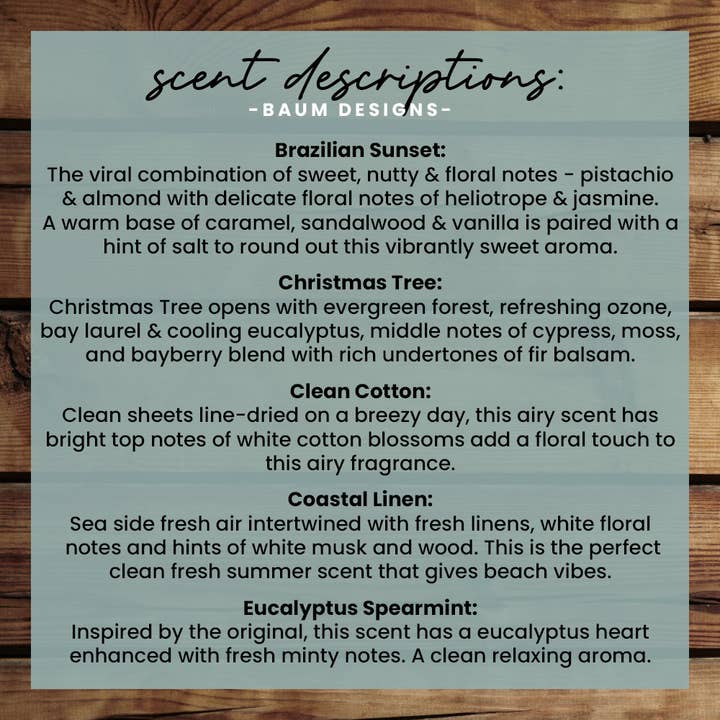 scent descriptions:
-BAUM DESIGNS-
Brazilian Sunset:
The viral combination of sweet, nutty & floral notes - pistachio
& almond with delicate floral notes of heliotrope & jasmine.
A warm base of caramel, sandalwood & vanilla is paired with a
hint of salt to round out this vibrantly sweet aroma.
Christmas Tree:
Christmas Tree opens with evergreen forest, refreshing ozone,
bay laurel & cooling eucalyptus, middle notes of cypress, moss,
and bayberry blend with rich undertones of fir balsam.
Clean Cotton:
Clean sheets line-dried on a breezy day, this airy scent has
bright top notes of white cotton blossoms add a floral touch to
this airy fragrance.
Coastal Linen:
Sea side fresh air intertwined with fresh linens, white floral
notes and hints of white musk and wood. This is the perfect
clean fresh summer scent that gives beach vibes.
Eucalyptus Spearmint:
Inspired by the original, this scent has a eucalyptus heart
enhanced with fresh minty notes. A clean relaxing aroma.